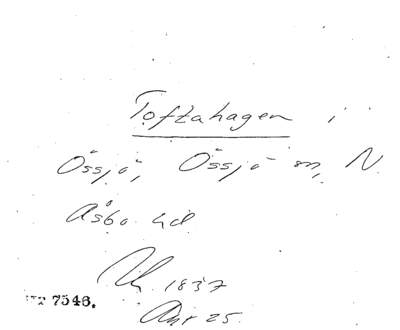 Toftahagen i
Össjö, Össjö sn, N.
Åsbo hd.
1837
7546.
25